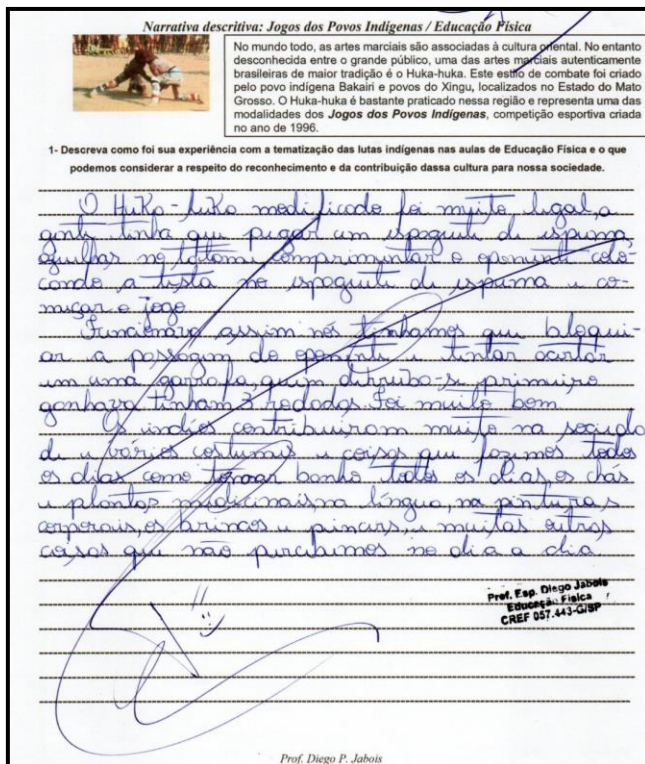 Narrativa descritiva: Jogos dos Povos Indígenas / Educação Física
No mundo todo, as artes marciais são associadas à cultura oriental. No entanto
desconhecida entre o grande público, uma das artes marciais autenticamente
brasileiras de maior tradição é o Huka-huka. Este estilo de combate foi criado
pelo povo indígena Bakairi e povos do Xingu, localizados no Estado do Mato
Grosso. O Huka-huka é bastante praticado nessa região e representa uma das
modalidades dos Jogos dos Povos Indígenas, competição esportiva criada
no ano de 1996.
1- Descreva como foi sua experiência com a tematização das lutas indígenas nas aulas de Educação Física e o que
podemos considerar a respeito do reconhecimento e da contribuição dassa cultura para nossa sociedade.
O Huka-huka modificado foi muito legal, a
gente tinha que pegar um espaguete de espuma,
ajuelhar no tatami comprimentar o oponente colo-
cando a testa no espaguete de espuma e co-
meçar o jogo
Funcionava assim nós tinhamos que bloque-
ar a passagem do oponente e tentar acertar
em uma garrafa, quem derruba-se primeiro
ganhava tinham 3 rodadas. Foi muito bom
Os índios contribuiram muito na socieda
de e vários costumes e coisas que fazemos todos
os dias como tomar banho todos os dias, os chás
e plantas medicinais, na língua, na pinturas
corporais, os brincos e pincers, e muitas outras
coisas que não percebemos no dia a dia
Prof. Esp. Diego Jabois
Educação Física
CREF 057.443-G/SP
Prof. Diego P. Jabois